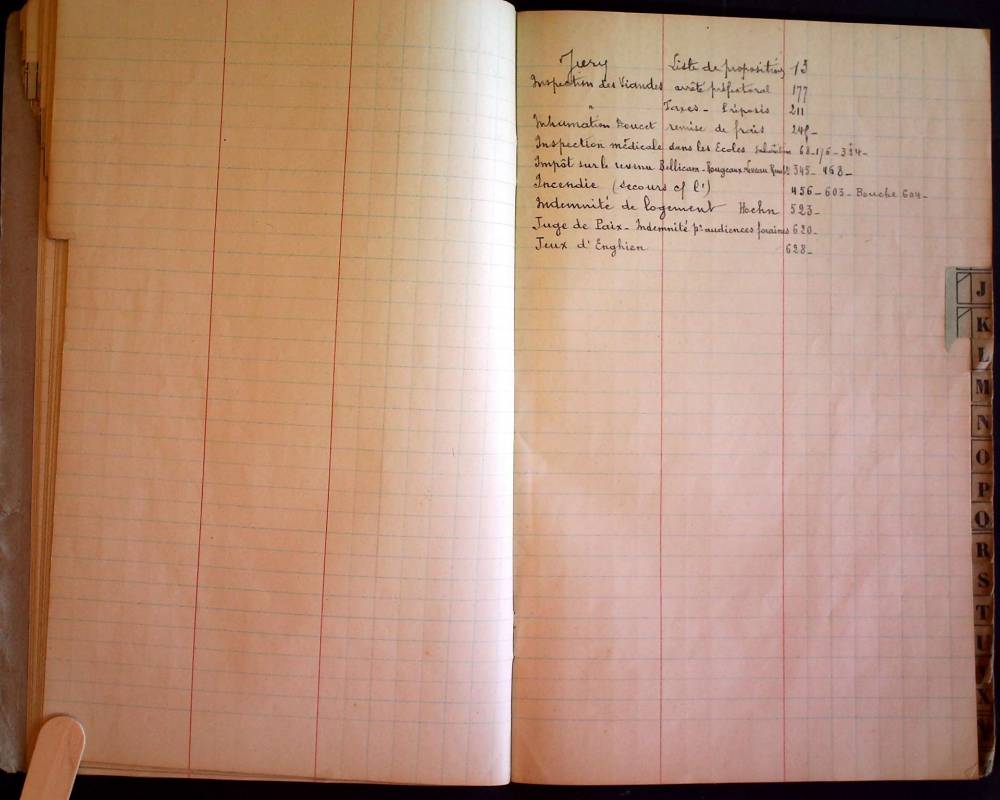 Jury Liste de propositions 13
Inspection des Viandes arrêté préfectoral 177
" Taxes - Préposés 211
Inhumation Doucet remise de frais 249-
Inspection médicale dans les Ecoles 68-176-384-
Impôt sur le revenu Bellicam-Rougeaux 345-468-
Incendie (secours c/ l') 456-603-Bouche 604-
Indemnité de logement Hoehn 523-
Juge de Paix- Indemnité pr audiences foraines 620-
Jeux d'Enghien 628-
J
K
L
M
N
O
P
Q
R
S
T
U
X